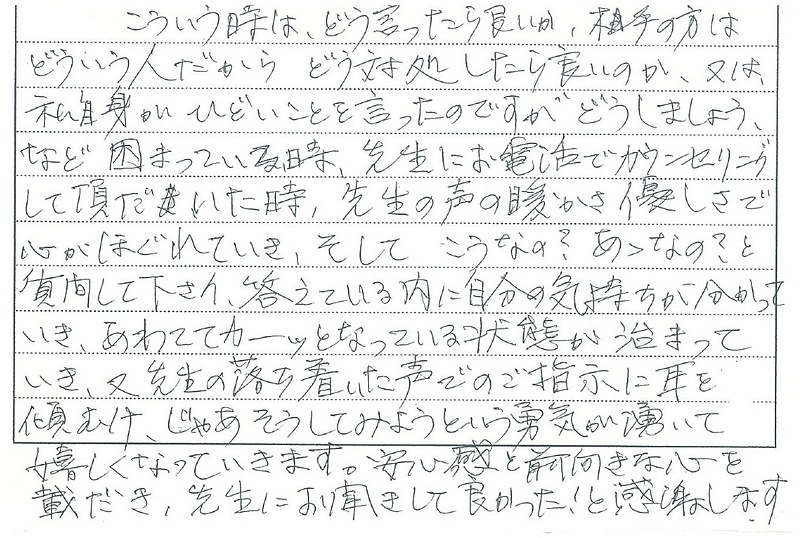 こういう時は、どう言ったら良いか、相手の方は
どういう人だから どう対処したら良いのか、又は、
私自身がひどいことを言ったのですがどうしましょう、
など 困まっている時、先生にお電話でカウンセリング
して頂だいた時、先生の声の暖かさ優しさで
心がほぐれていき、そして こうなの？あゝなの？と
質問して下さり、答えている内に自分の気持ちが分かって
いき、あわててカーッとなっている状態が治まって
いき、又先生の落ち着いた声でのご指示に耳を
傾むけ、じゃあそうしてみようという勇気が湧いて
嬉しくなっていきます。安心感と前向きな心を
戴だき、先生にお聞きして良かった！と感謝します